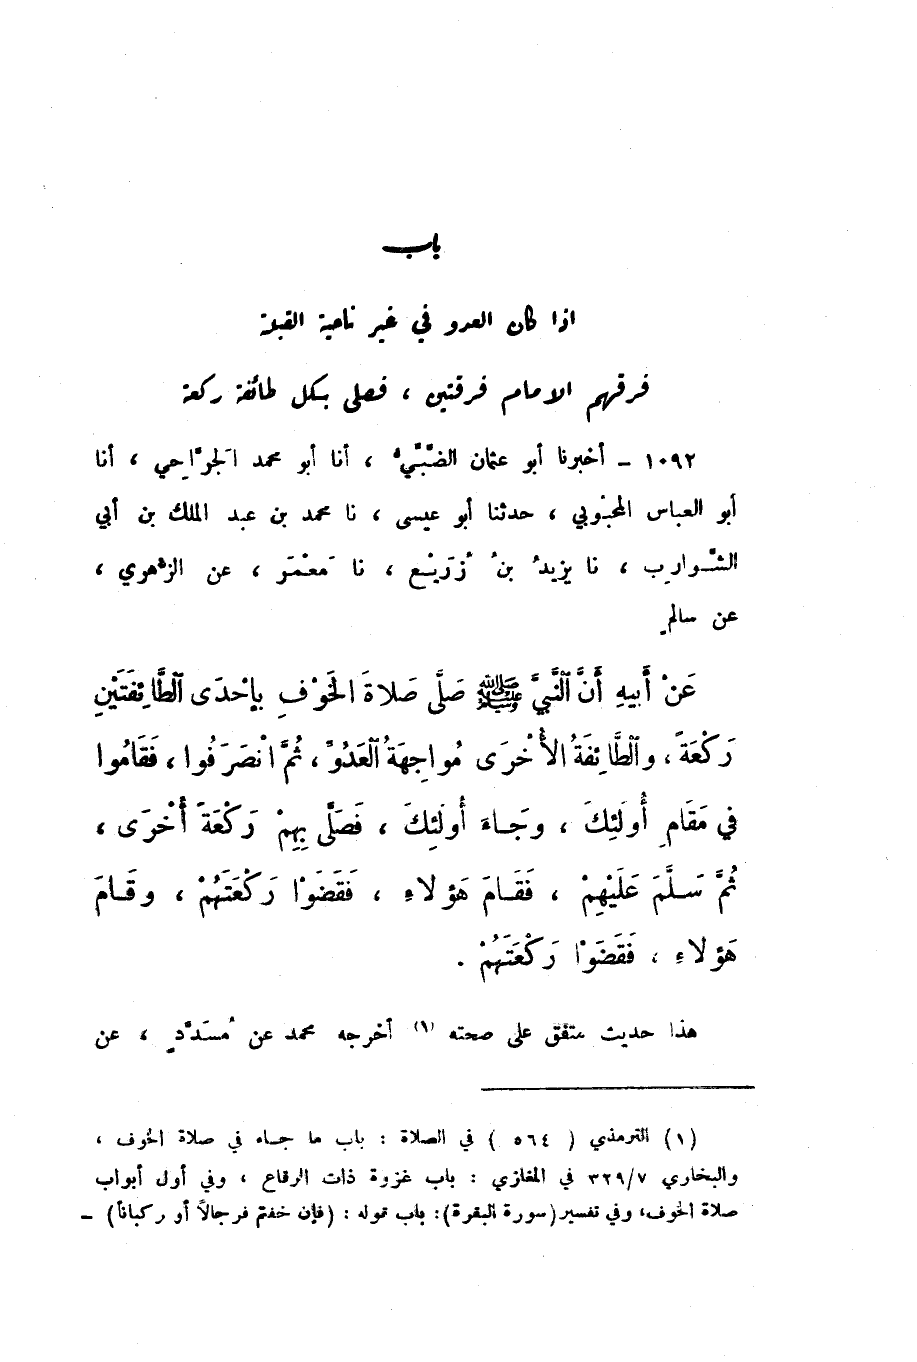 باب
اذا كان العدو في غير ناحية القبلة
فرقهم الامام فرقتين ، فصلى بكل طائفة ركعة
١٠٩٢ – أخبرنا أبو عثمان الضَّبِّيُّ ، أنا أبو محمد الجَرَّاحِي ، أنا
أبو العباس المحْبُوبي ، حدثنا أبو عيسى ، نا محمد بن عبد الملك بن أبي
الشَّوارِب ، نا يزيدُ بنُ زُرَيْع ، نا مَعْمَر ، عن الزُّهري ،
عن سالمٍ
عَنْ أَبيهِ أَنَّ ٱلنَّبيَّ ﷺ صَلَّى صَلاةَ الخَوْفِ بِإِحْدَى ٱلطَّائِفَتَيْنِ
رَكْعَةً ، وٱلطَّائِفَةُ الأُخْرَى مُواجِهَةُ ٱلعَدُوِّ ، ثُمَّ انْصَرَفُوا ، فَقَامُوا
في مَقَامِ أُولَئِكَ ، وجَاءَ أُولَئِكَ ، فَصَلَّى بِهِمْ رَكْعَةً أُخْرَى ،
ثُمَّ سَلَّمَ عَلَيْهِمْ ، فَقَامَ هَؤلاءِ ، فَقَضَوْا رَكْعَتَهُمْ ، وقَامَ
هَؤلاءِ ، فَقَضَوْا رَكْعَتَهُمْ .
هذا حديث متفق على صحته (١) أخرجه محمد عن مُسَدَّدٍ ، عن
(١) الترمذي ( ٥٦٤ ) في الصلاة : باب ما جاء في صلاة الخوف ،
والبخاري ٣٢٩/٧ في المغازي : باب غزوة ذات الرقاع ، وفي أول أبواب
صلاة الخوف، وفي تفسير (سورة البقرة): باب قوله : (فإن خفتم فرجالاً أو ركباناً) –